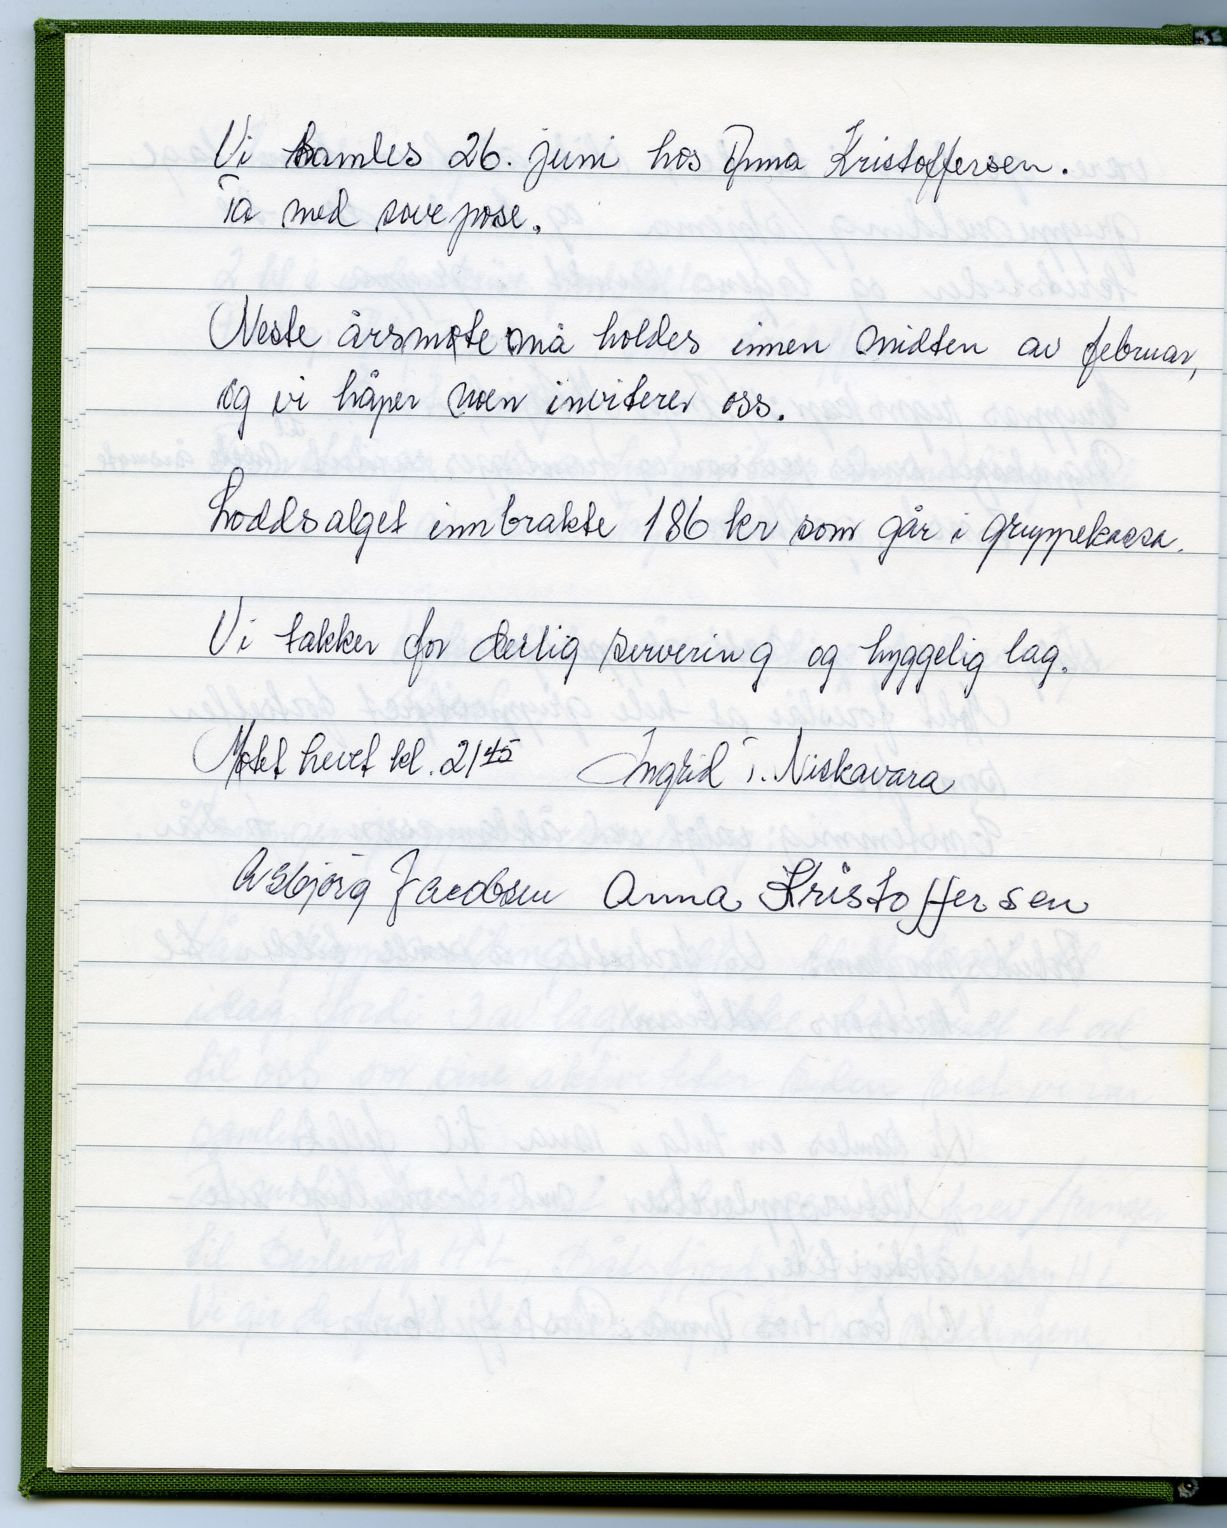 Vi samles 26. juni hos Anna Kristoffersen.
Ta med sovepose.
Neste årsmøte må holdes innen midten av februar,
og vi håper noen inviterer oss.
Loddsalget innbrakte 186 kr som går i gruppekassa.
Vi takker for deilig servering og hyggelig lag.
Møtet hevet kl. 2145 Ingrid T. Niskavara
Asbjørg Jacobsen Anna Kristoffersen